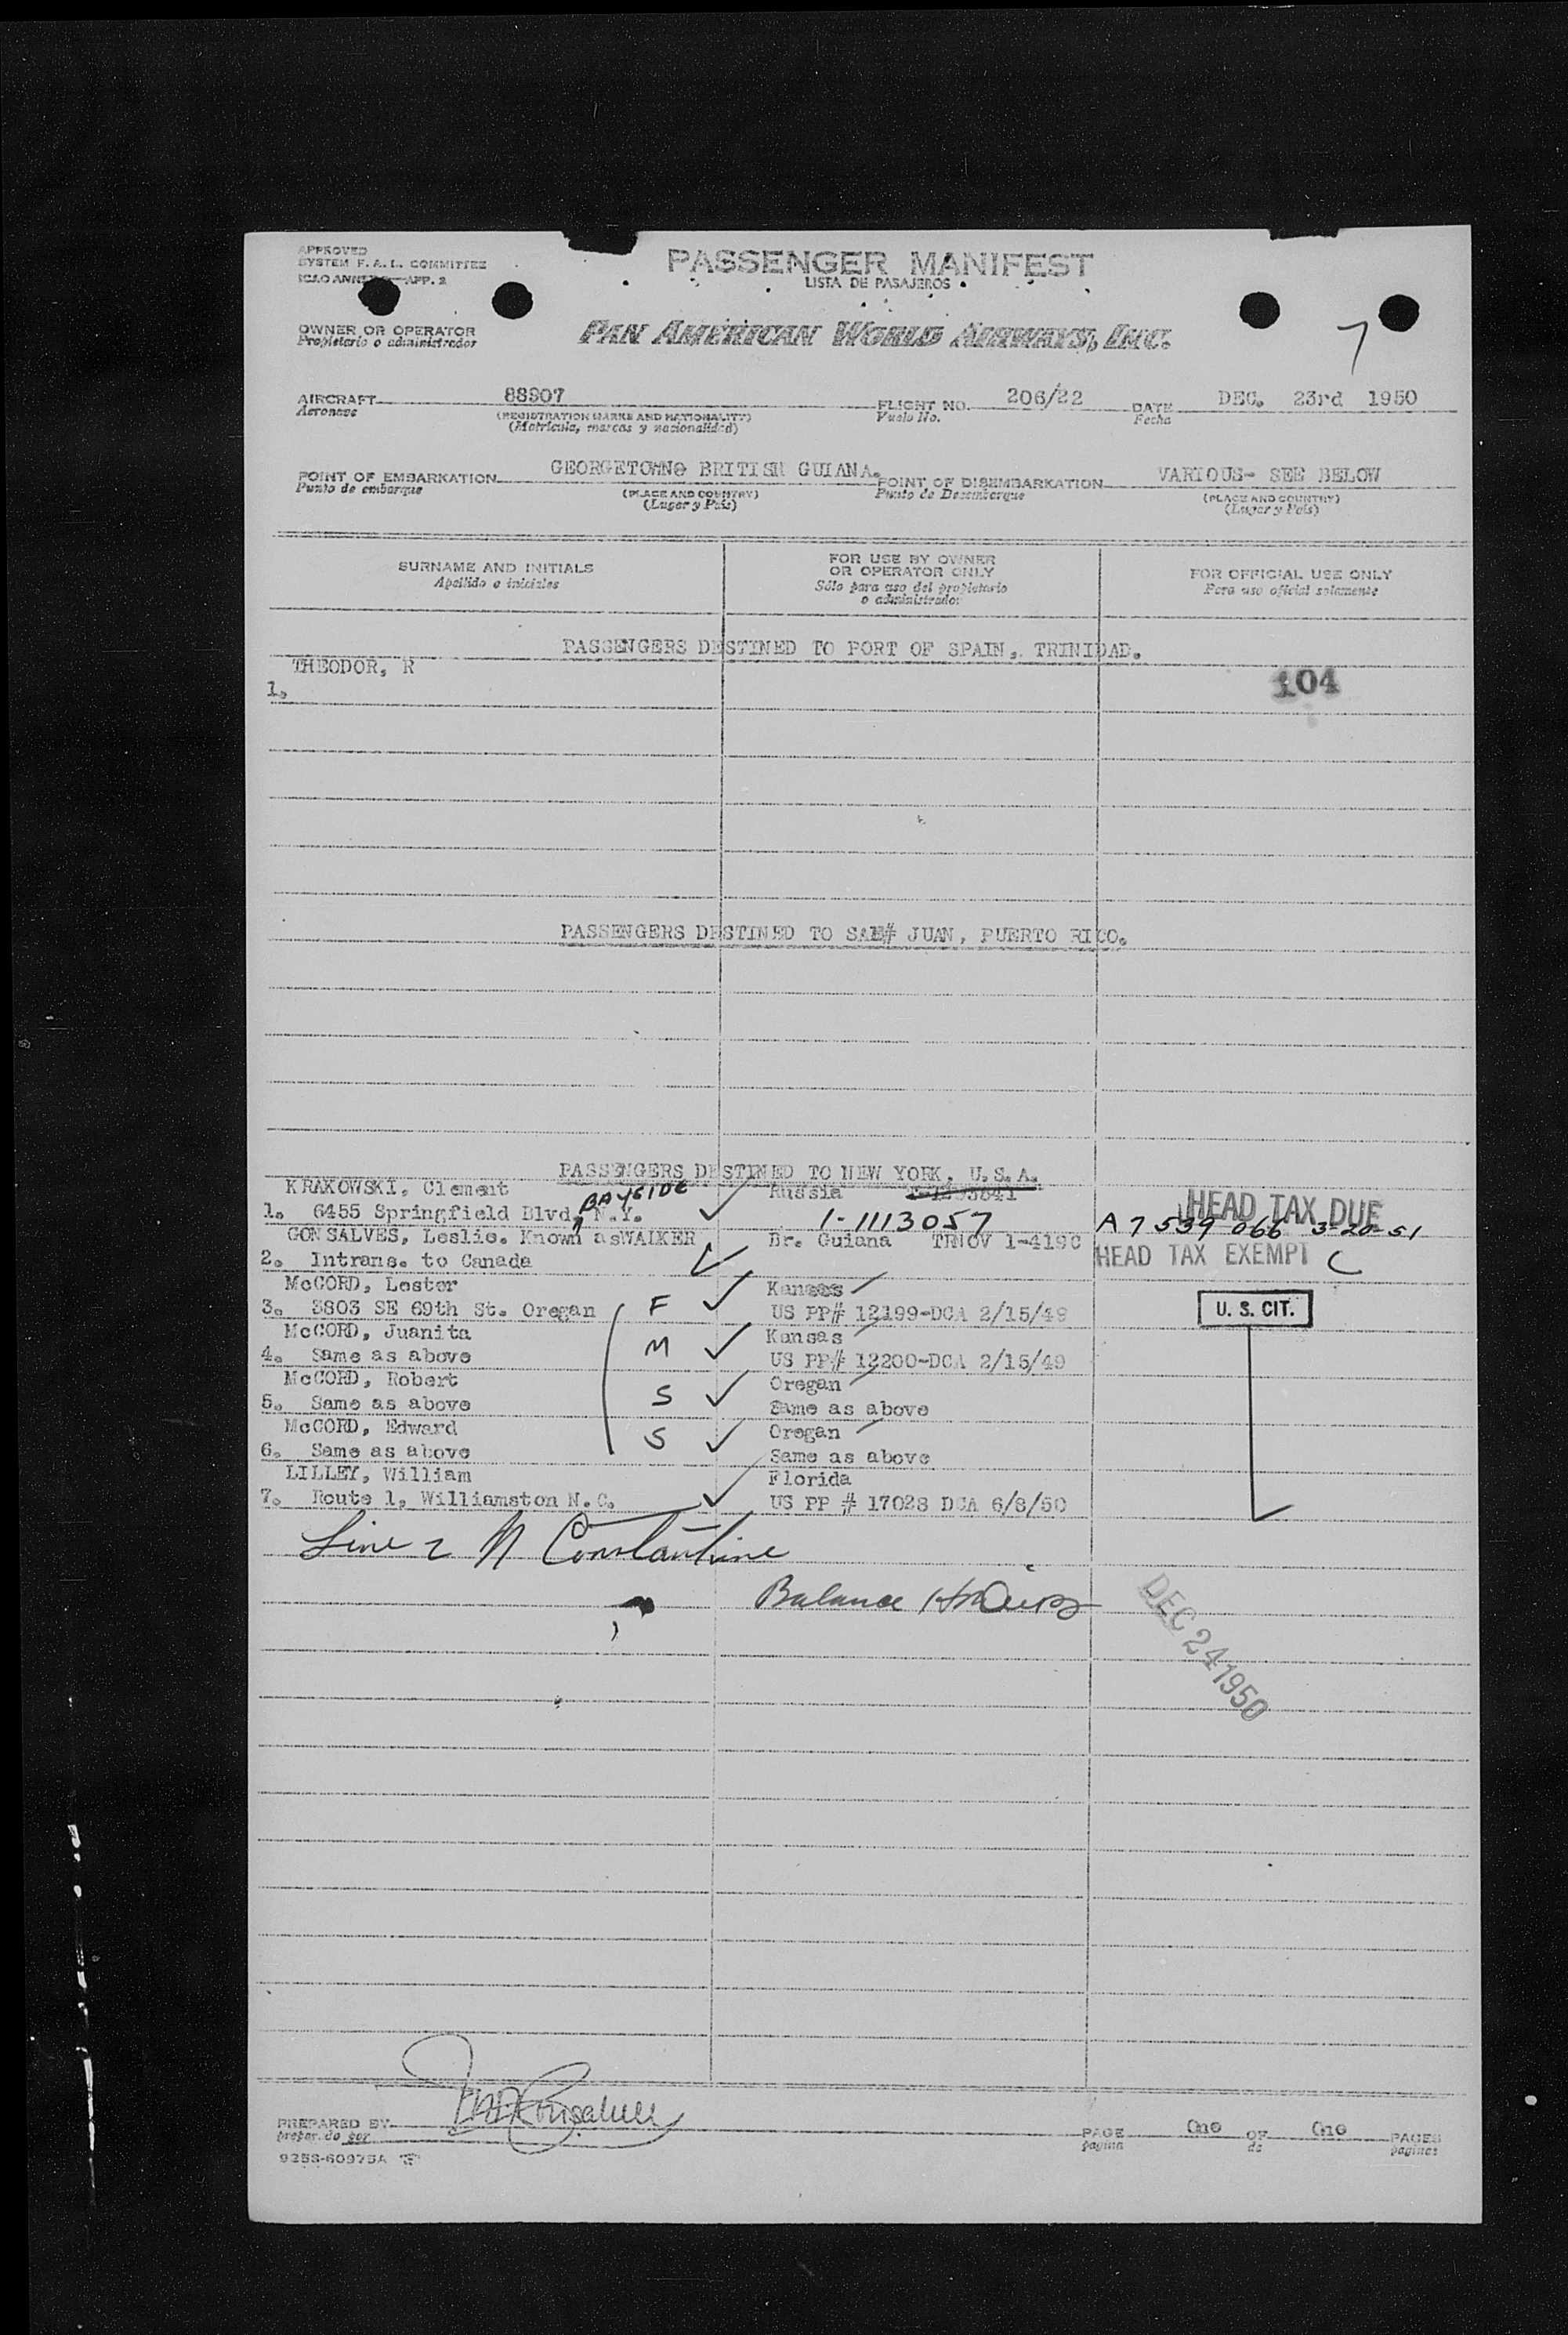 APPROVED
SYSTEM F.A.L. COMMITTEE
ICAO ANNEX APP. 2
PASSENGER MANIFEST
LISTA DE PASAJEROS
OWNER OR OPERATOR
Propietario o administrador
PAN AMERICAN WORLD AIRWAYS, INC.
7
AIRCRAFT 88907 FLIGHT NO. 206/22 DATE DEC. 23rd 1950
Aeronave (REGISTRATION MARKS AND NATIONALITY) Vuelo No. Fecha
(Matricula, marcas y nacionalidad)
POINT OF EMBARKATION GEORGETOWN@ BRITISH GUIANA. POINT OF DISEMBARKATION VARIOUS- SEE BELOW
Punto de embarque (PLACE AND COUNTRY) Punto de Desembarque (PLACE AND COUNTRY)
(Lugar y País) (Lugar y País)
SURNAME AND INITIALS FOR USE BY OWNER OR OPERATOR ONLY FOR OFFICIAL USE ONLY
Apellido e iniciales Sólo para uso del propietario o administrador Para uso oficial solamente
PASSENGERS DESTINED TO PORT OF SPAIN, TRINIDAD.
THEODOR, R
1. 104
PASSENGERS DESTINED TO SAE# JUAN, PUERTO RICO.
PASSENGERS DESTINED TO NEW YORK, U.S.A.
KRAKOWSKI, Clement BAYSIDE Russia HEAD TAX DUE
1. 6455 Springfield Blvd, N.Y. 1-1113057 A 7 539 066 3-20-51
GONSALVES, Leslie. Known asWALKER Br. Guiana TRNOV 1-419C
2. Intrans. to Canada HEAD TAX EXEMPT C
McCORD, Lester Kansas
3. 3803 SE 69th St. Oregan F US PP# 12199-DCA 2/15/49 U. S. CIT.
McCORD, Juanita M Kansas
4. Same as above US PP# 12200-DCA 2/15/49
McCORD, Robert Oregan
5. Same as above S Same as above
McCORD, Edward Oregan
6. Same as above S Same as above
LILLEY, William Florida
7. Route 1, Williamston N.C. US PP # 17028 DCA 6/8/50
Line 2 N Constantine
Balance
DEC 24 1950
PREPARED BY PAGE One OF One PAGES
prepar do por pagina de paginas
9258-60975A